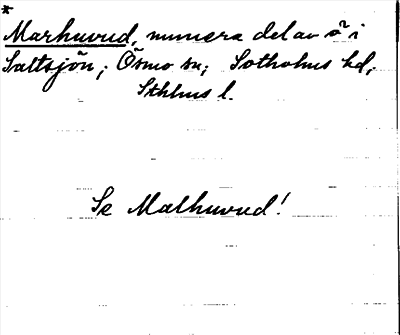 *
Marhuvud, numera del av ö i
Saltsjön; Ösmo sn; Sotholms hd;
Sthlms l.
Se Malhuvud!